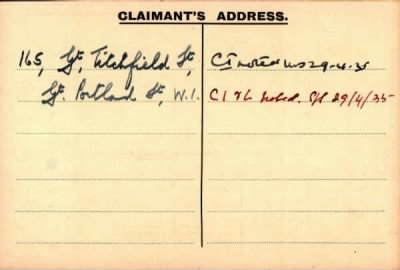 CLAIMANT'S ADDRESS.
165, Gt. Titchfield St,
Gt. Portland St, W.1.
CI noted 29-4-35
CI 72 Noted. 29/4/35